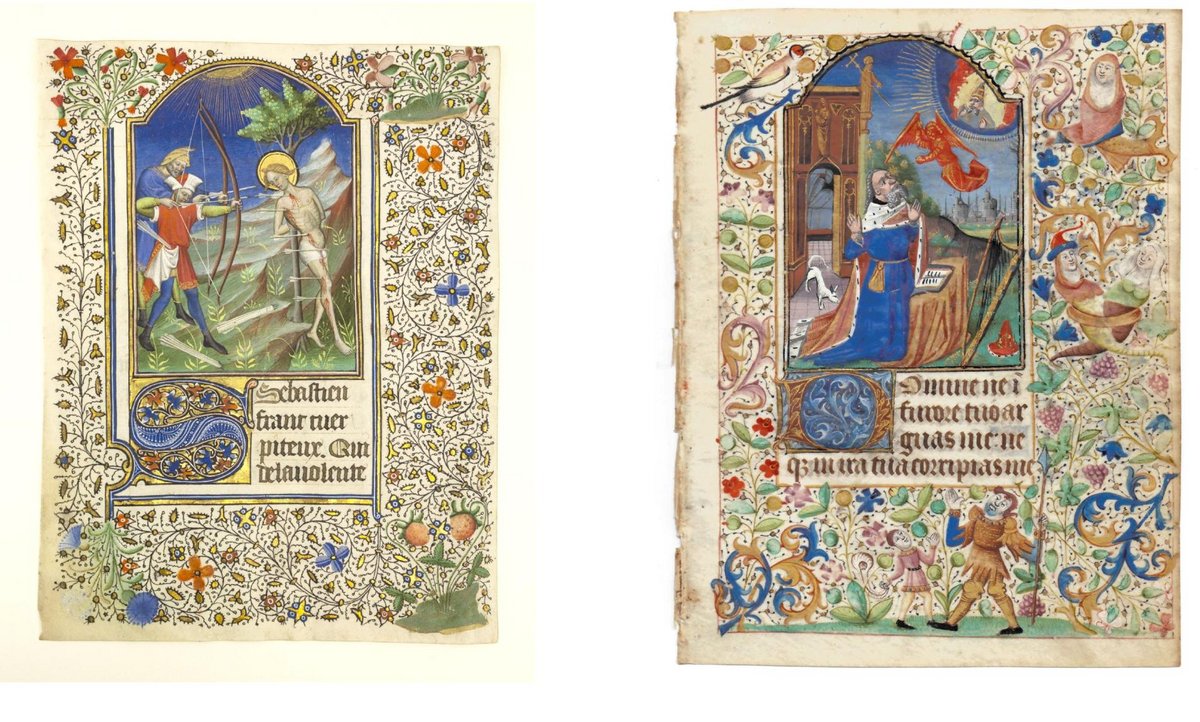 Sebastien
franc cuer
piteux. Qui
de la volente
DOmine ne i
furore tuo ar
guas me: ne
q; in ira tua corripias me